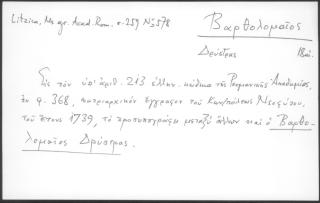 Litzica, Ms gr. Acad. Rom. σ. 259 No 578
Βαρθολομαῖος
Δρύστρας 18αι.
Εἰς τὸν ὑπ' ἀριθ. 213 ἑλλην. κώδικα τῆς Ρουμανικῆς Ἀκαδημίας,
ἐν φ. 368, πατριαρχικὸν ἔγγραφον τοῦ Κων/πόλεως Νεοφύτου,
τοῦ ἔτους 1739, τὸ προσυπογράφει μεταξὺ ἄλλων καὶ ὁ Βαρθο-
λομαῖος Δρύστρας.